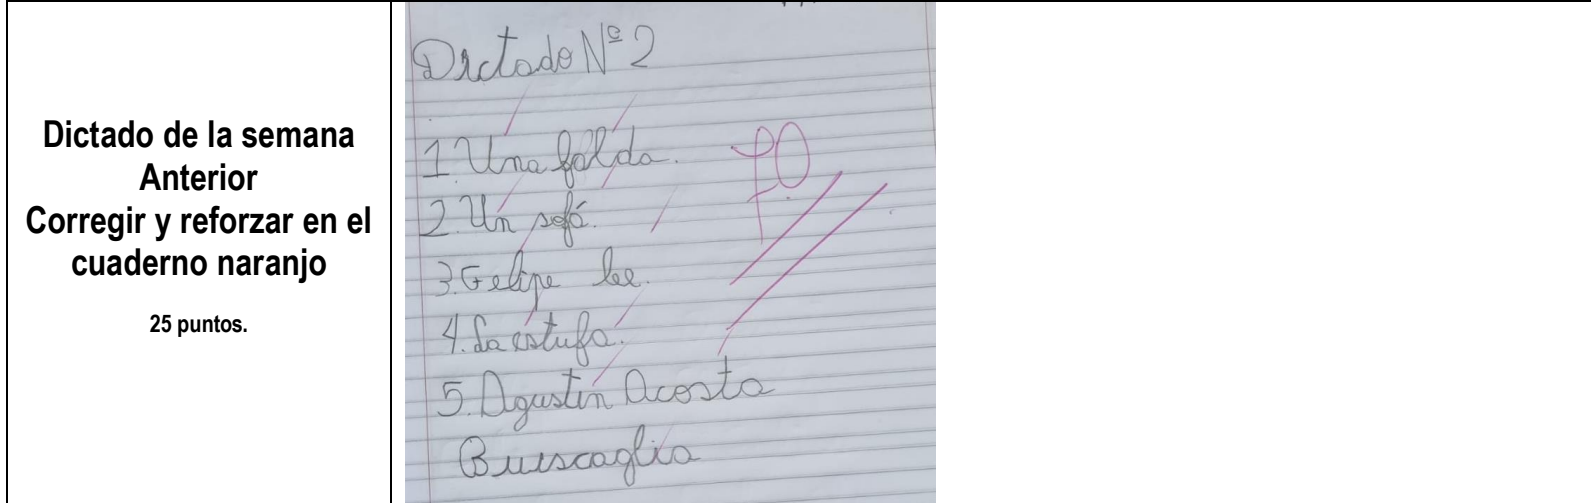 Dictado de la semana
Anterior
Corregir y reforzar en el
cuaderno naranjo
25 puntos.
Dictado Nº 2
1. Una falda.
2. Un sofá.
3. Felipe lee.
4. La estufa.
5. Agustín Acosta
Buiscaglia
7.0